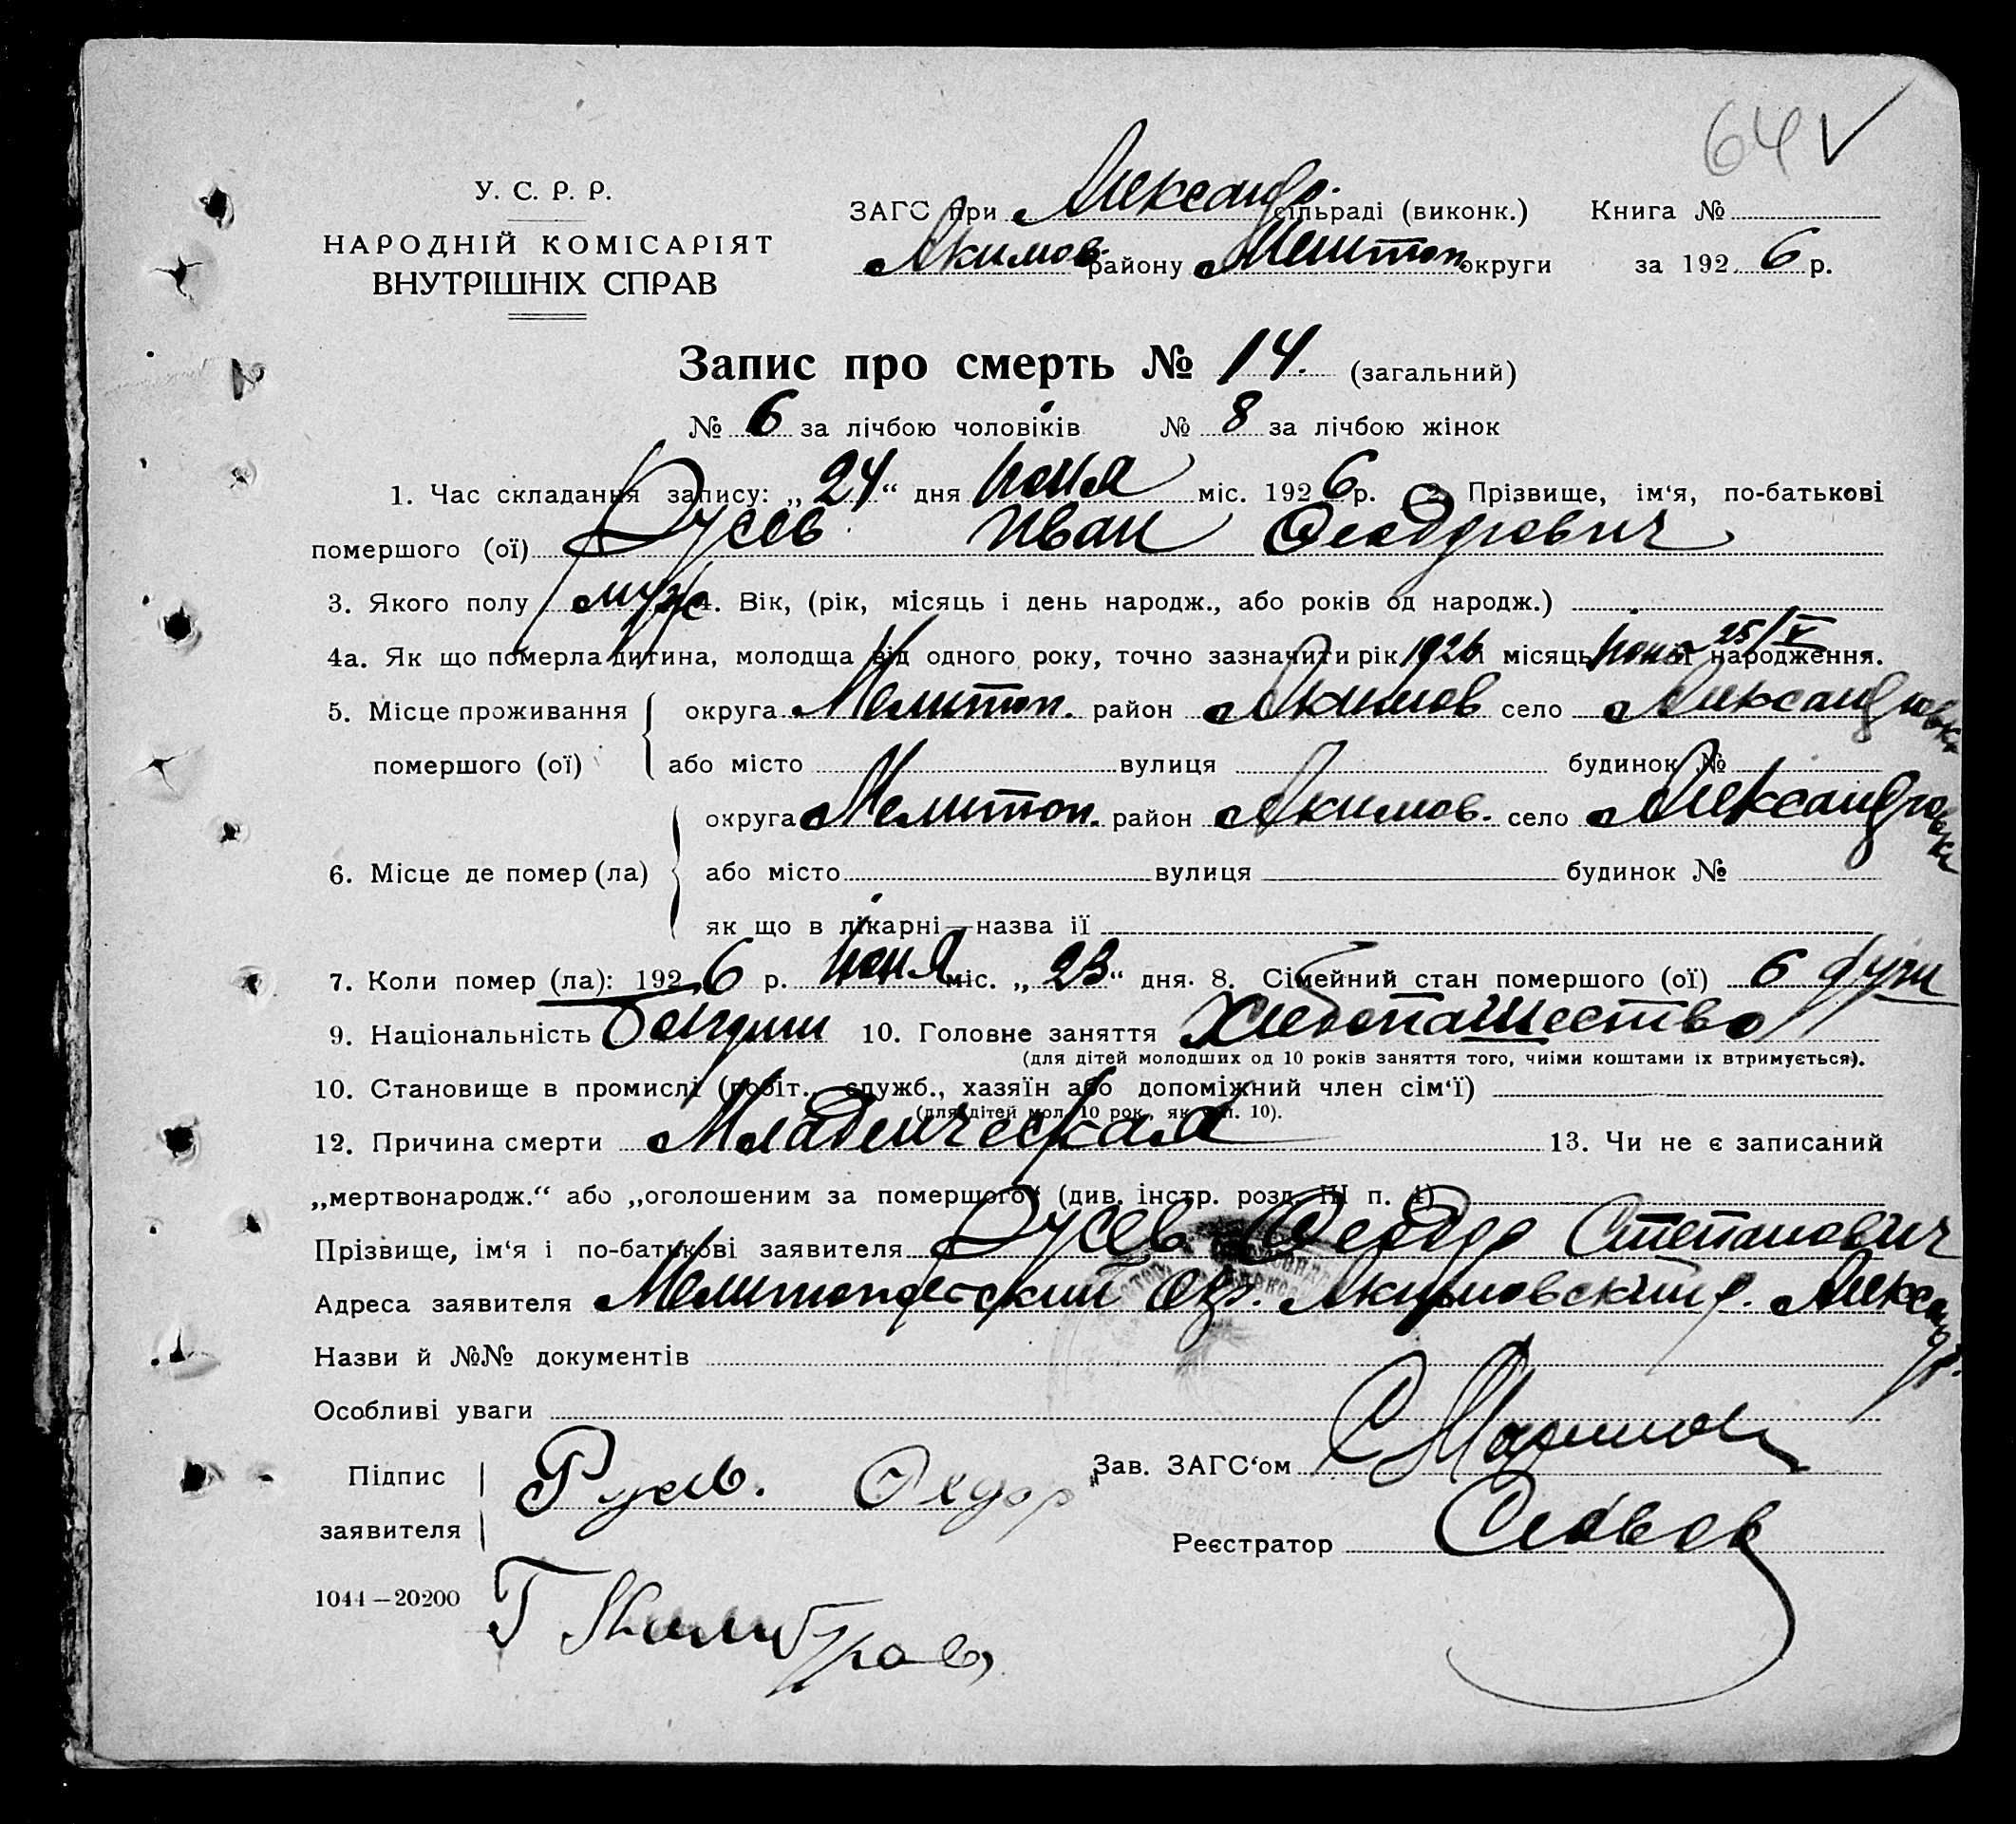 64 ✓
У. С. Р. Р.
НАРОДНІЙ КОМІСАРІЯТ
ВНУТРІШНІХ СПРАВ
ЗАГС при Александр. сільраді (виконк.) Книга №
Акимов. району Мелитоп округи за 1926 р.
Запис про смерть № 14. (загальний)
№ 6 за лічбою чоловіків № 8 за лічбою жінок
1. Час складання запису: „24“ дня июня міс. 1926 р. 2. Прізвище, ім‘я, по-батькові
помершого (ої) Русев Иван Феодорович
3. Якого полу муж 4. Вік, (рік, місяць і день народж., або років од народж.)
4а. Як що померла дитина, молодща від одного року, точно зазначити рік 1926 і місяць 25/V народження.
5. Місце проживання помершого (ої) округа Мелитоп. район Акимов село Александровка
або місто вулиця будинок №
6. Місце де помер (ла) округа Мелитоп. район Акимов. село Александровка
або місто вулиця будинок №
як що в лікарні—назва ії
7. Коли помер (ла): 1926 р. июня міс. „23“ дня. 8. Сімейний стан помершого (ої) 6 душ
9. Національність Болгарин 10. Головне заняття Хлебопашество
(для дітей молодших од 10 років заняття того, чиіми коштами іх втримується).
10. Становище в промислі (робіт., служб., хазяїн або допоміжний член сім‘ї)
(для дітей мол. 10 рок., як в п. 10).
12. Причина смерти Младенческая 13. Чи не є записаний
„мертвонародж.“ або „оголошеним за помершого“ (див. інстр. розд. III п. 4)
Прізвище, ім‘я і по-батькові заявителя Русев Феодор Степанович
Адреса заявителя Мелитопольский окр. Акимовский р. Александр.
Назви й №№ документів
Особливі уваги
Підпис заявителя Русев. Федор
Зав. ЗАГС‘ом С Маринов
Реєстратор
1044—20200